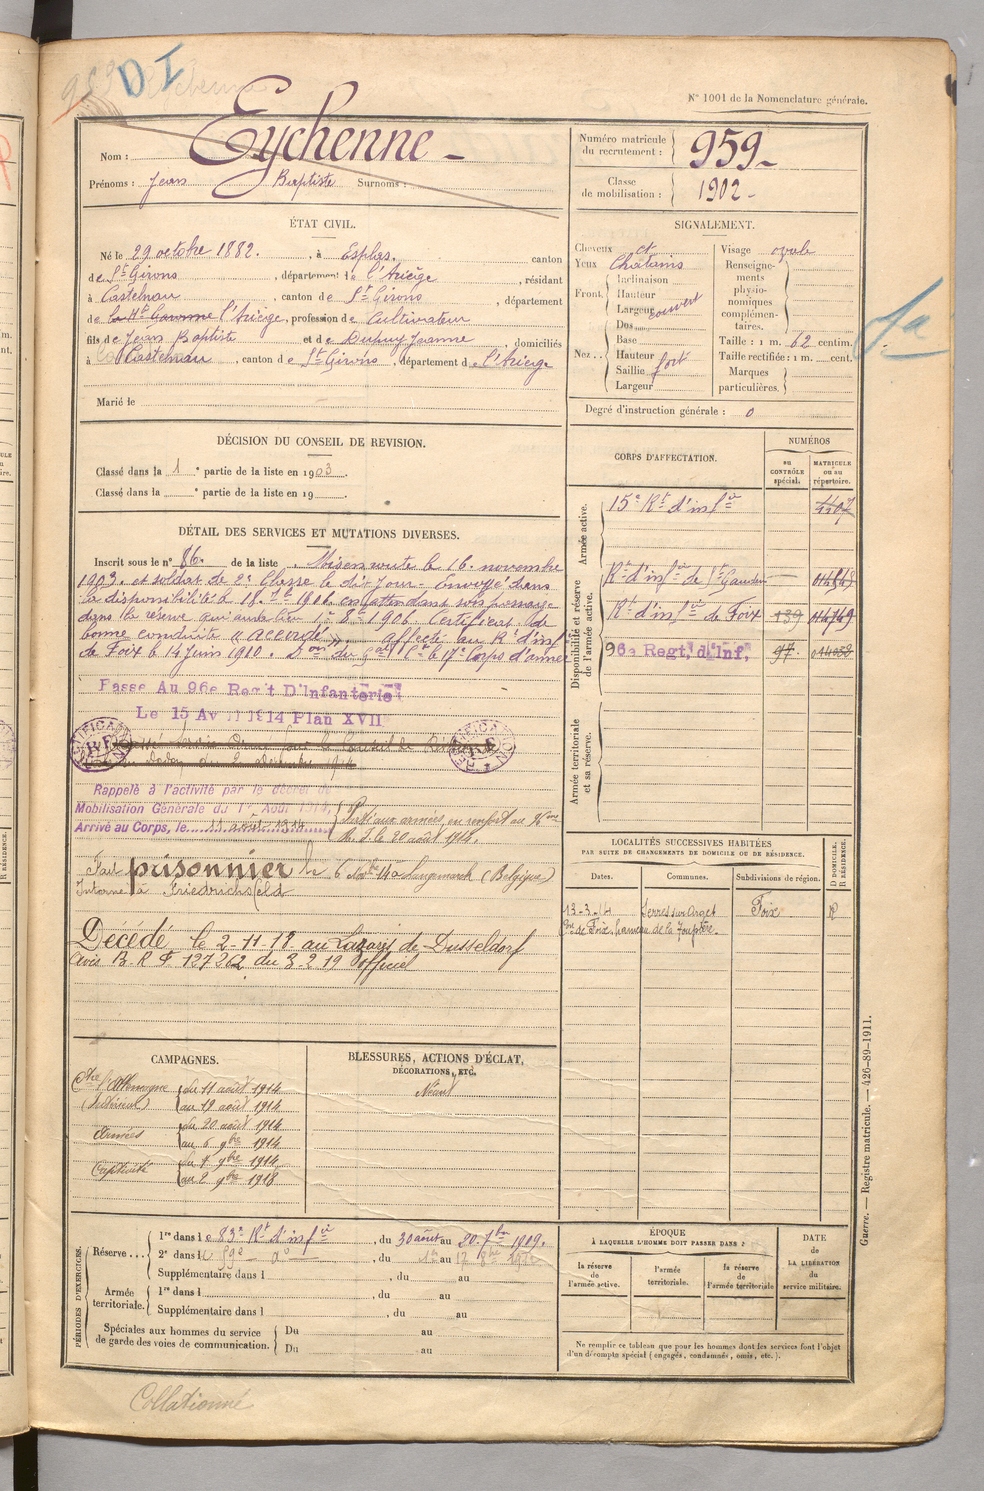 959
D I
N° 1001 de la Nomenclature générale.
Nom : Eychenne
Prénoms : Jean Baptiste Surnoms :
Numéro matricule du recrutement : 959
Classe de mobilisation : 1902
ÉTAT CIVIL.
Né le 29 octobre 1882, à Esplas, canton
de St Girons, département de l'Ariège, résidant
à Castelnau, canton de St Girons, département
de la Hte Garonne l'Ariège, profession de Cultivateur
fils de Jean Baptiste et de Dupuy Jeanne, domiciliés
à Castelnau, canton de St Girons, département de l'Ariège
Marié le
SIGNALEMENT.
Cheveux et
Yeux Chatains
Front
Inclinaison
Hauteur
Largeur couvert
Nez
Dos
Base
Hauteur
Saillie fort
Largeur
Visage ovale
Renseignements physionomiques complémentaires.
Taille : 1 m. 62 centim.
Taille rectifiée : 1 m. cent.
Marques particulières.
Degré d'instruction générale : 0
DÉCISION DU CONSEIL DE REVISION.
Classé dans la 1e partie de la liste en 1903.
Classé dans la e partie de la liste en 19
DÉTAIL DES SERVICES ET MUTATIONS DIVERSES.
Inscrit sous le n° 86 de la liste. Mis en route le 16 novembre
1903 et soldat de 2e Classe le dit jour. Envoyé dans
la disponibilité le 18 7bre 1906 en attendant son passage
dans la réserve qui aura lieu 1er 8bre 1906. Certificat de
bonne conduite "accordé". Affecté au Rt d'inf
de Foix le 14 Juin 1910. Don du Gal Ct le 17e Corps d'armée
Passe Au 96e Regt D'Infanterie
Le 15 Av 1914 Plan XVII
RECTIFICATION R.F.
RECTIFICATION R.F.
Rappelé à l'activité par le décret de
Mobilisation Générale du 1er Août 1914,
Arrivé au Corps, le 11 août 1914
Parti aux armées en renfort au 96ème
R.I. le 20 août 1914.
Fait prisonnier le 6 Nbre 14 à Langemarck (Belgique)
Interné à Friedrichsfeld
Décédé le 2-11-18 au Lazaret de Dusseldorf
Avis B.R. F 127262 du 3.2.19 officiel
CORPS D'AFFECTATION.
NUMÉROS
au CONTRÔLE spécial.
MATRICULE ou au répertoire.
Armée active.
15e Rt d'infie
Disponibilité et réserve de l'armée active.
Rt d'infie de St Gaudens
Rt d'infie de Foix 139 014749
96e Regt, d'Inf, 97
Armée territoriale et sa réserve.
LOCALITÉS SUCCESSIVES HABITÉES
PAR SUITE DE CHANGEMENTS DE DOMICILE OU DE RÉSIDENCE.
Dates. Communes. Subdivisions de région. D DOMICILE. R RÉSIDENCE.
13-3-14 Serres sur Arget Foix R
Cne de Foix, hameau de la
CAMPAGNES.
Ctre l'Allemagne
(Intérieur)
du 11 août 1914
au 19 août 1914
Armées
du 20 août 1914
au 6 9bre 1914
Captivité
du 7 9bre 1914
au 2 9bre 1918
BLESSURES, ACTIONS D'ÉCLAT,
DÉCORATIONS, ETC.
Néant
PÉRIODES D'EXERCICES.
Réserve
1re dans le 83e Rt d'infie, du 30 août au 20 7bre 1909.
2e dans l 59e do, du au 17 8bre
Supplémentaire dans l , du au
Armée territoriale.
1re dans l , du au
Supplémentaire dans l , du au
Spéciales aux hommes du service de garde des voies de communication.
Du au
Du au
ÉPOQUE
À LAQUELLE L'HOMME DOIT PASSER DANS :
la réserve de l'armée active.
l'armée territoriale.
la réserve de l'armée territoriale
DATE de LA LIBÉRATION du service militaire.
Ne remplir ce tableau que pour les hommes dont les services font l'objet
d'un décompte spécial (engagés, condamnés, omis, etc.).
Guerre. — Registre matricule. — 426-89-1911.
Collationné